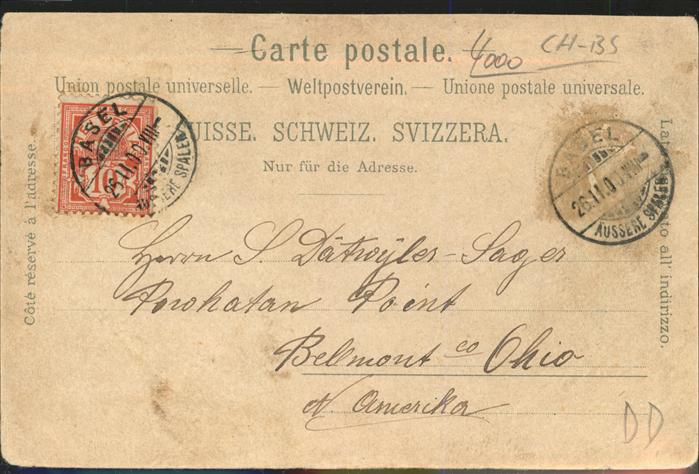 Carte postale.
4000
CH-BS
Union postale universelle. — Weltpostverein. — Unione postale universale.
SUISSE. SCHWEIZ. SVIZZERA.
Nur für die Adresse.
Côté réservé à l'adresse.
Lato all' indirizzo.
BASEL
26.II.0
ÄUSSERE SPALEN
10
BASEL
26.II.0
ÄUSSERE SPALEN
Herrn S Dätwyler-Sager
Powhatan Point
Bellmont co Ohio
N. Amerika
DD